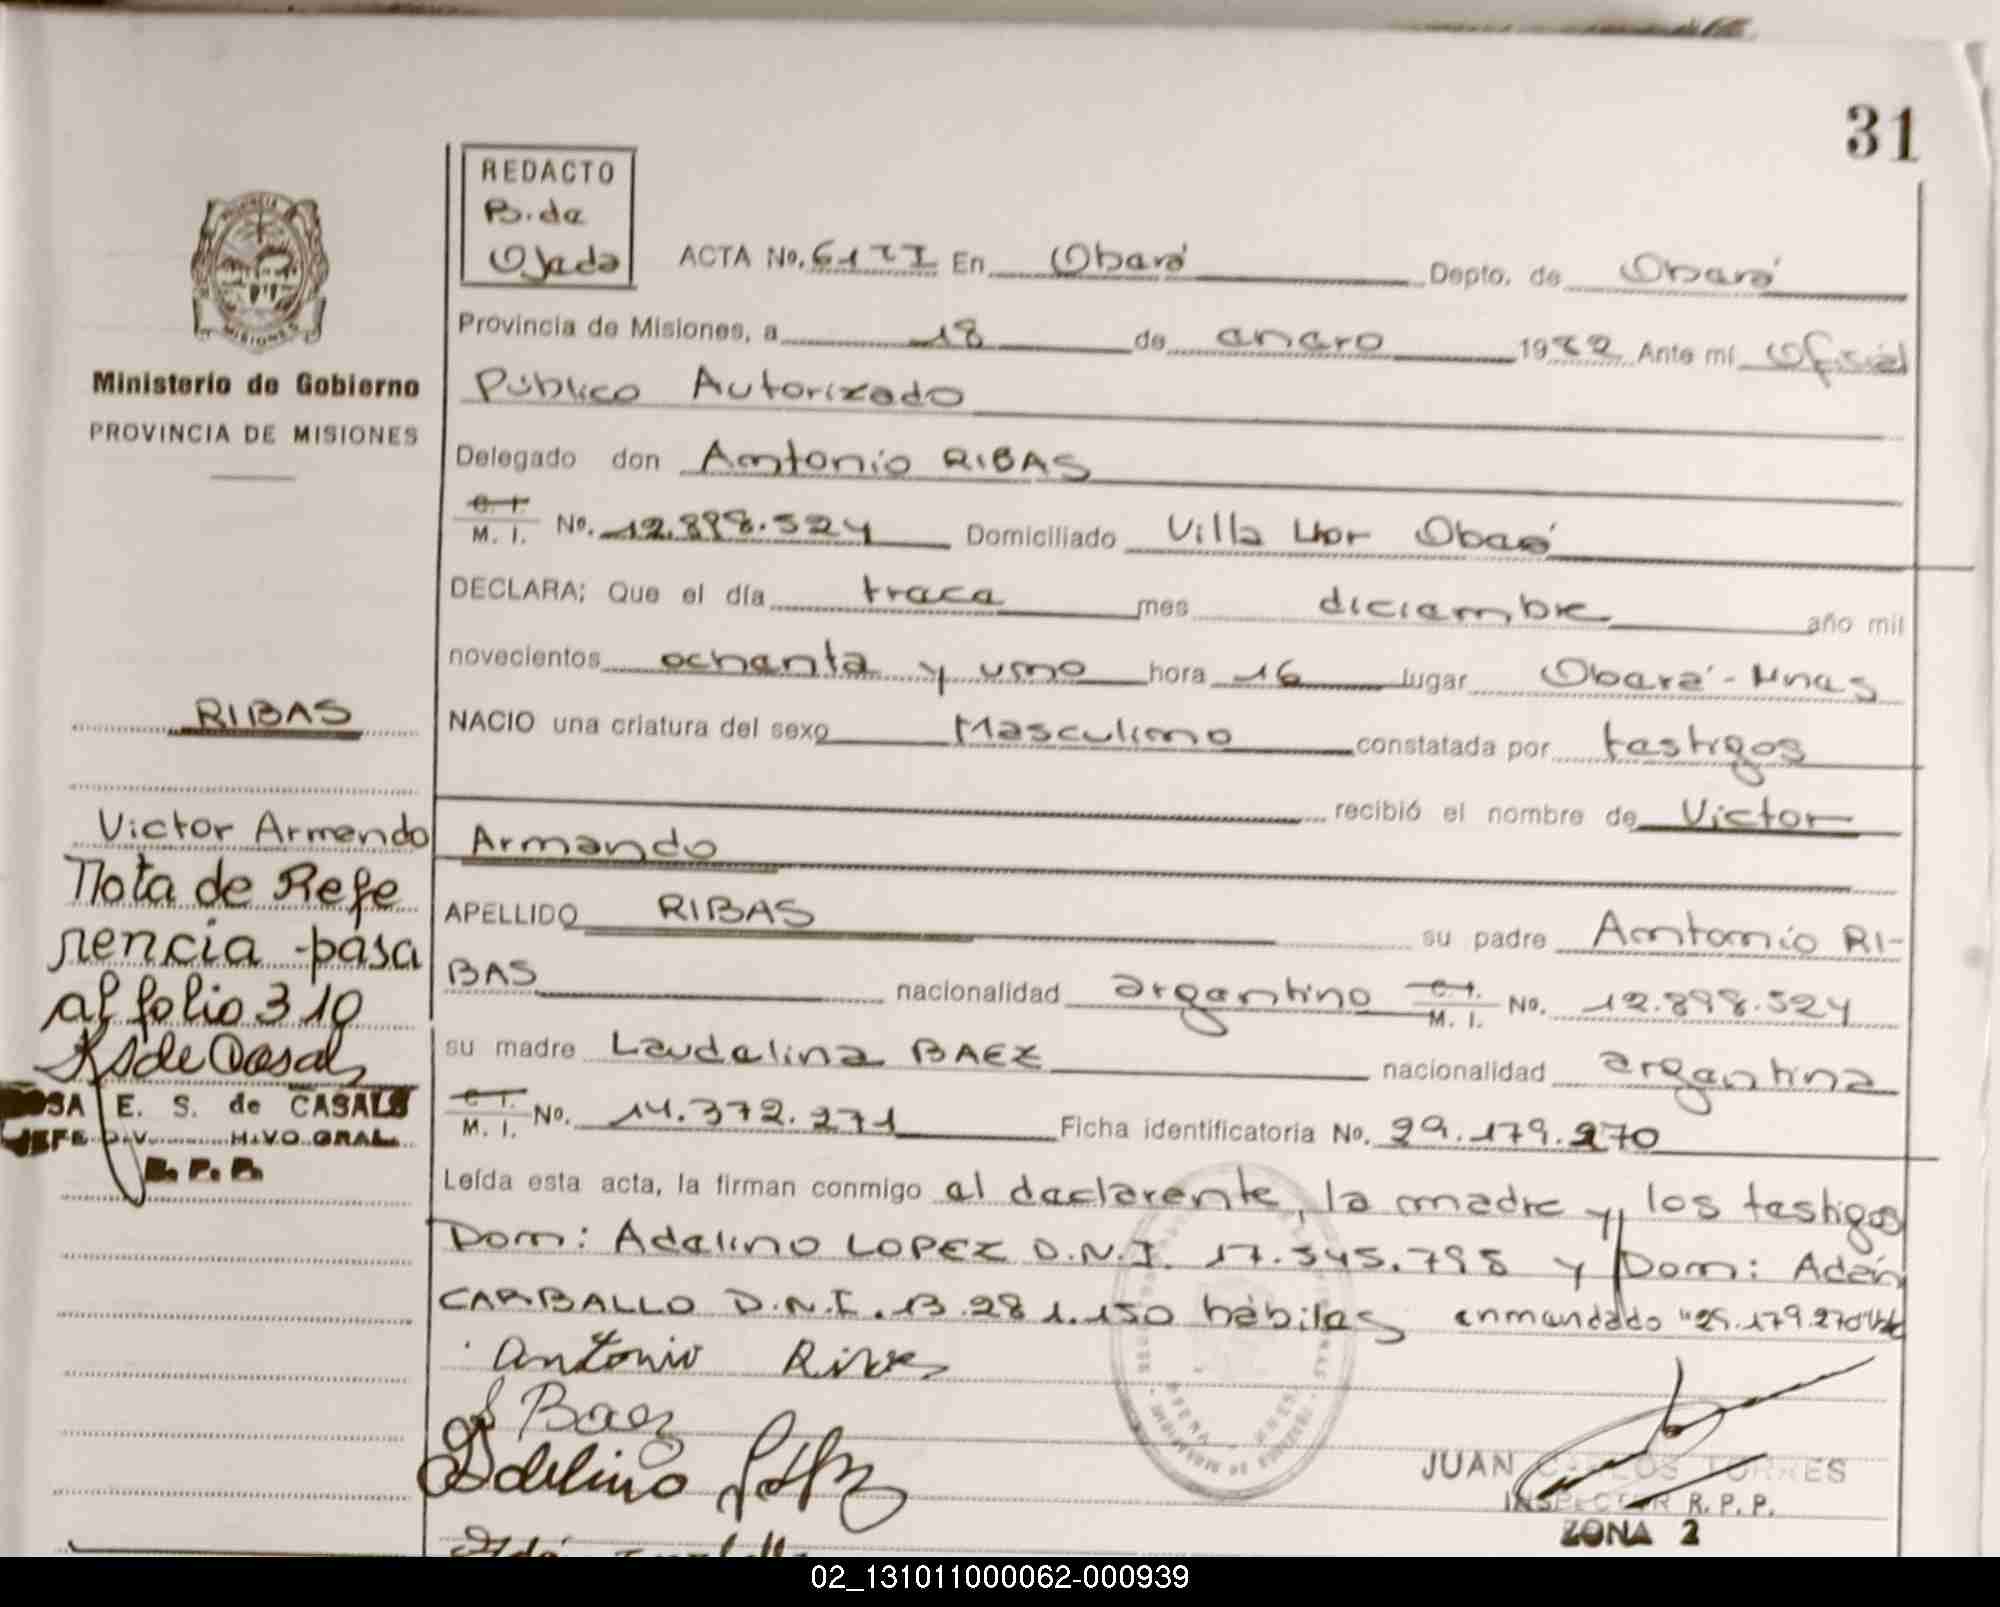 31
REDACTO
B. de
Ojeda
ACTA No. 6177 En Oberá Depto. de Oberá
Provincia de Misiones, a 18 de enero 1982 Ante mí Oficial
Público Autorizado
Delegado don Antonio RIBAS
C. I.
M. I. No. 12.898.524 Domiciliado Villa Lhor Oberá
DECLARA; Que el día trece mes diciembre año mil
novecientos ochenta y uno hora 16 lugar Oberá - Mnes
NACIO una criatura del sexo Masculino constatada por testigos
recibió el nombre de Victor
Armando
APELLIDO RIBAS su padre Antonio RI-
BAS nacionalidad argentino C. I. M. I. No. 12.898.524
su madre Laudelina BAEZ nacionalidad argentina
C. I.
M. I. No. 14.372.271 Ficha identificatoria No. 29.179.270
Leída esta acta, la firman conmigo el declarente, la madre y los testigos
Dom: Adelino LOPEZ D.N.I. 17.545.798 y Dom: Adán
CARBALLO D.N.I. 13.281.150 hábiles enmendado "29.179.270" Vale
Antonio Rives
L Baez
Adelino
JUAN CARLOS TORRES
INSPECTOR R. P. P.
ZONA 2
PROVINCIA
MISIONES
Ministerio de Gobierno
PROVINCIA DE MISIONES
RIBAS
Victor Armendo
Nota de Refe
rencia - pasa
al folio 310
RSde Casals
ROSA E. S. de CASALS
JEFE DIV. HIVO GRAL.
R. P. P.
02_131011000062-000939